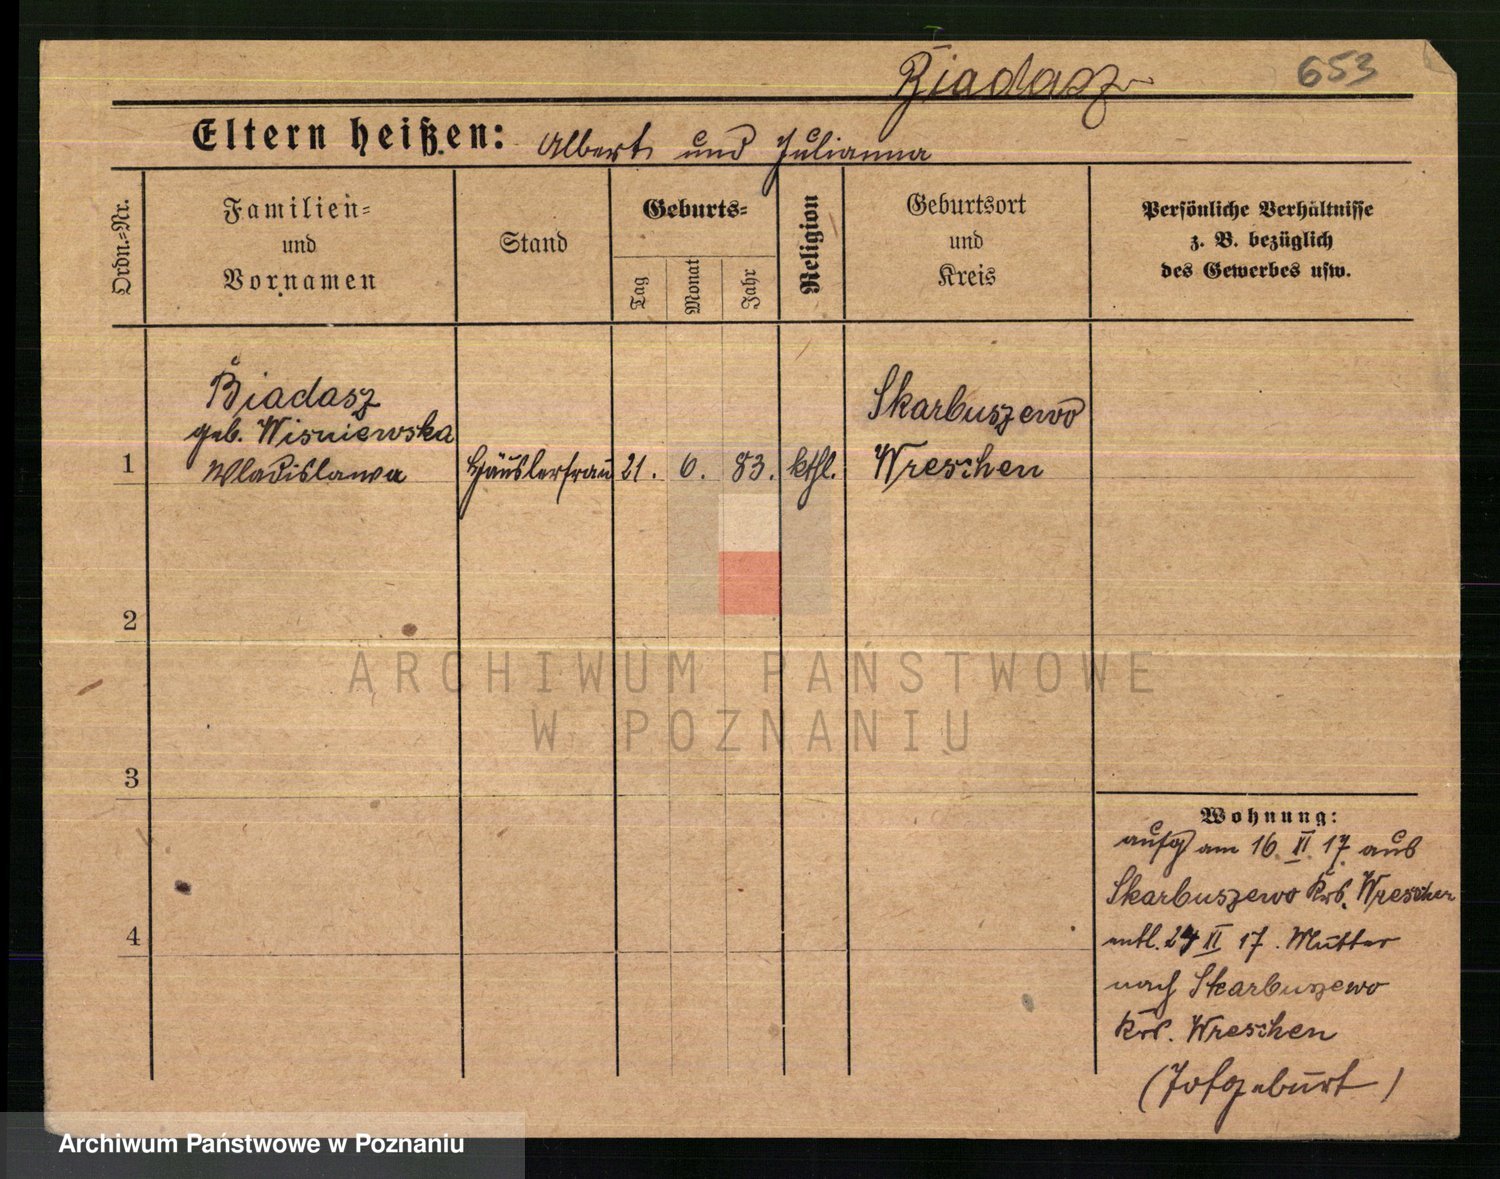 Biadasz 653
Eltern heißen: Albert und Julianna
Ordn.-Nr.
Familien-
und
Vornamen
Stand
Geburts-
Tag
Monat
Jahr
Religion
Geburtsort
und
Kreis
Persönliche Verhältnisse
z. B. bezüglich
des Gewerbes usw.
Biadasz
geb. Wisniewska
1 Wladislawa Häuslerfrau 21. 6. 83. kthl.
Skarbuszewo
Wreschen
2
3
4
ARCHIWUM PAŃSTWOWE
W POZNANIU
Wohnung:
aufg am 16. II. 17. aus
Skarbuszewo Krs. Wreschen
entl. 24 II 17. Mutter
nach Skarbuszewo
Krs. Wreschen
(Totgeburt)
Archiwum Państwowe w Poznaniu